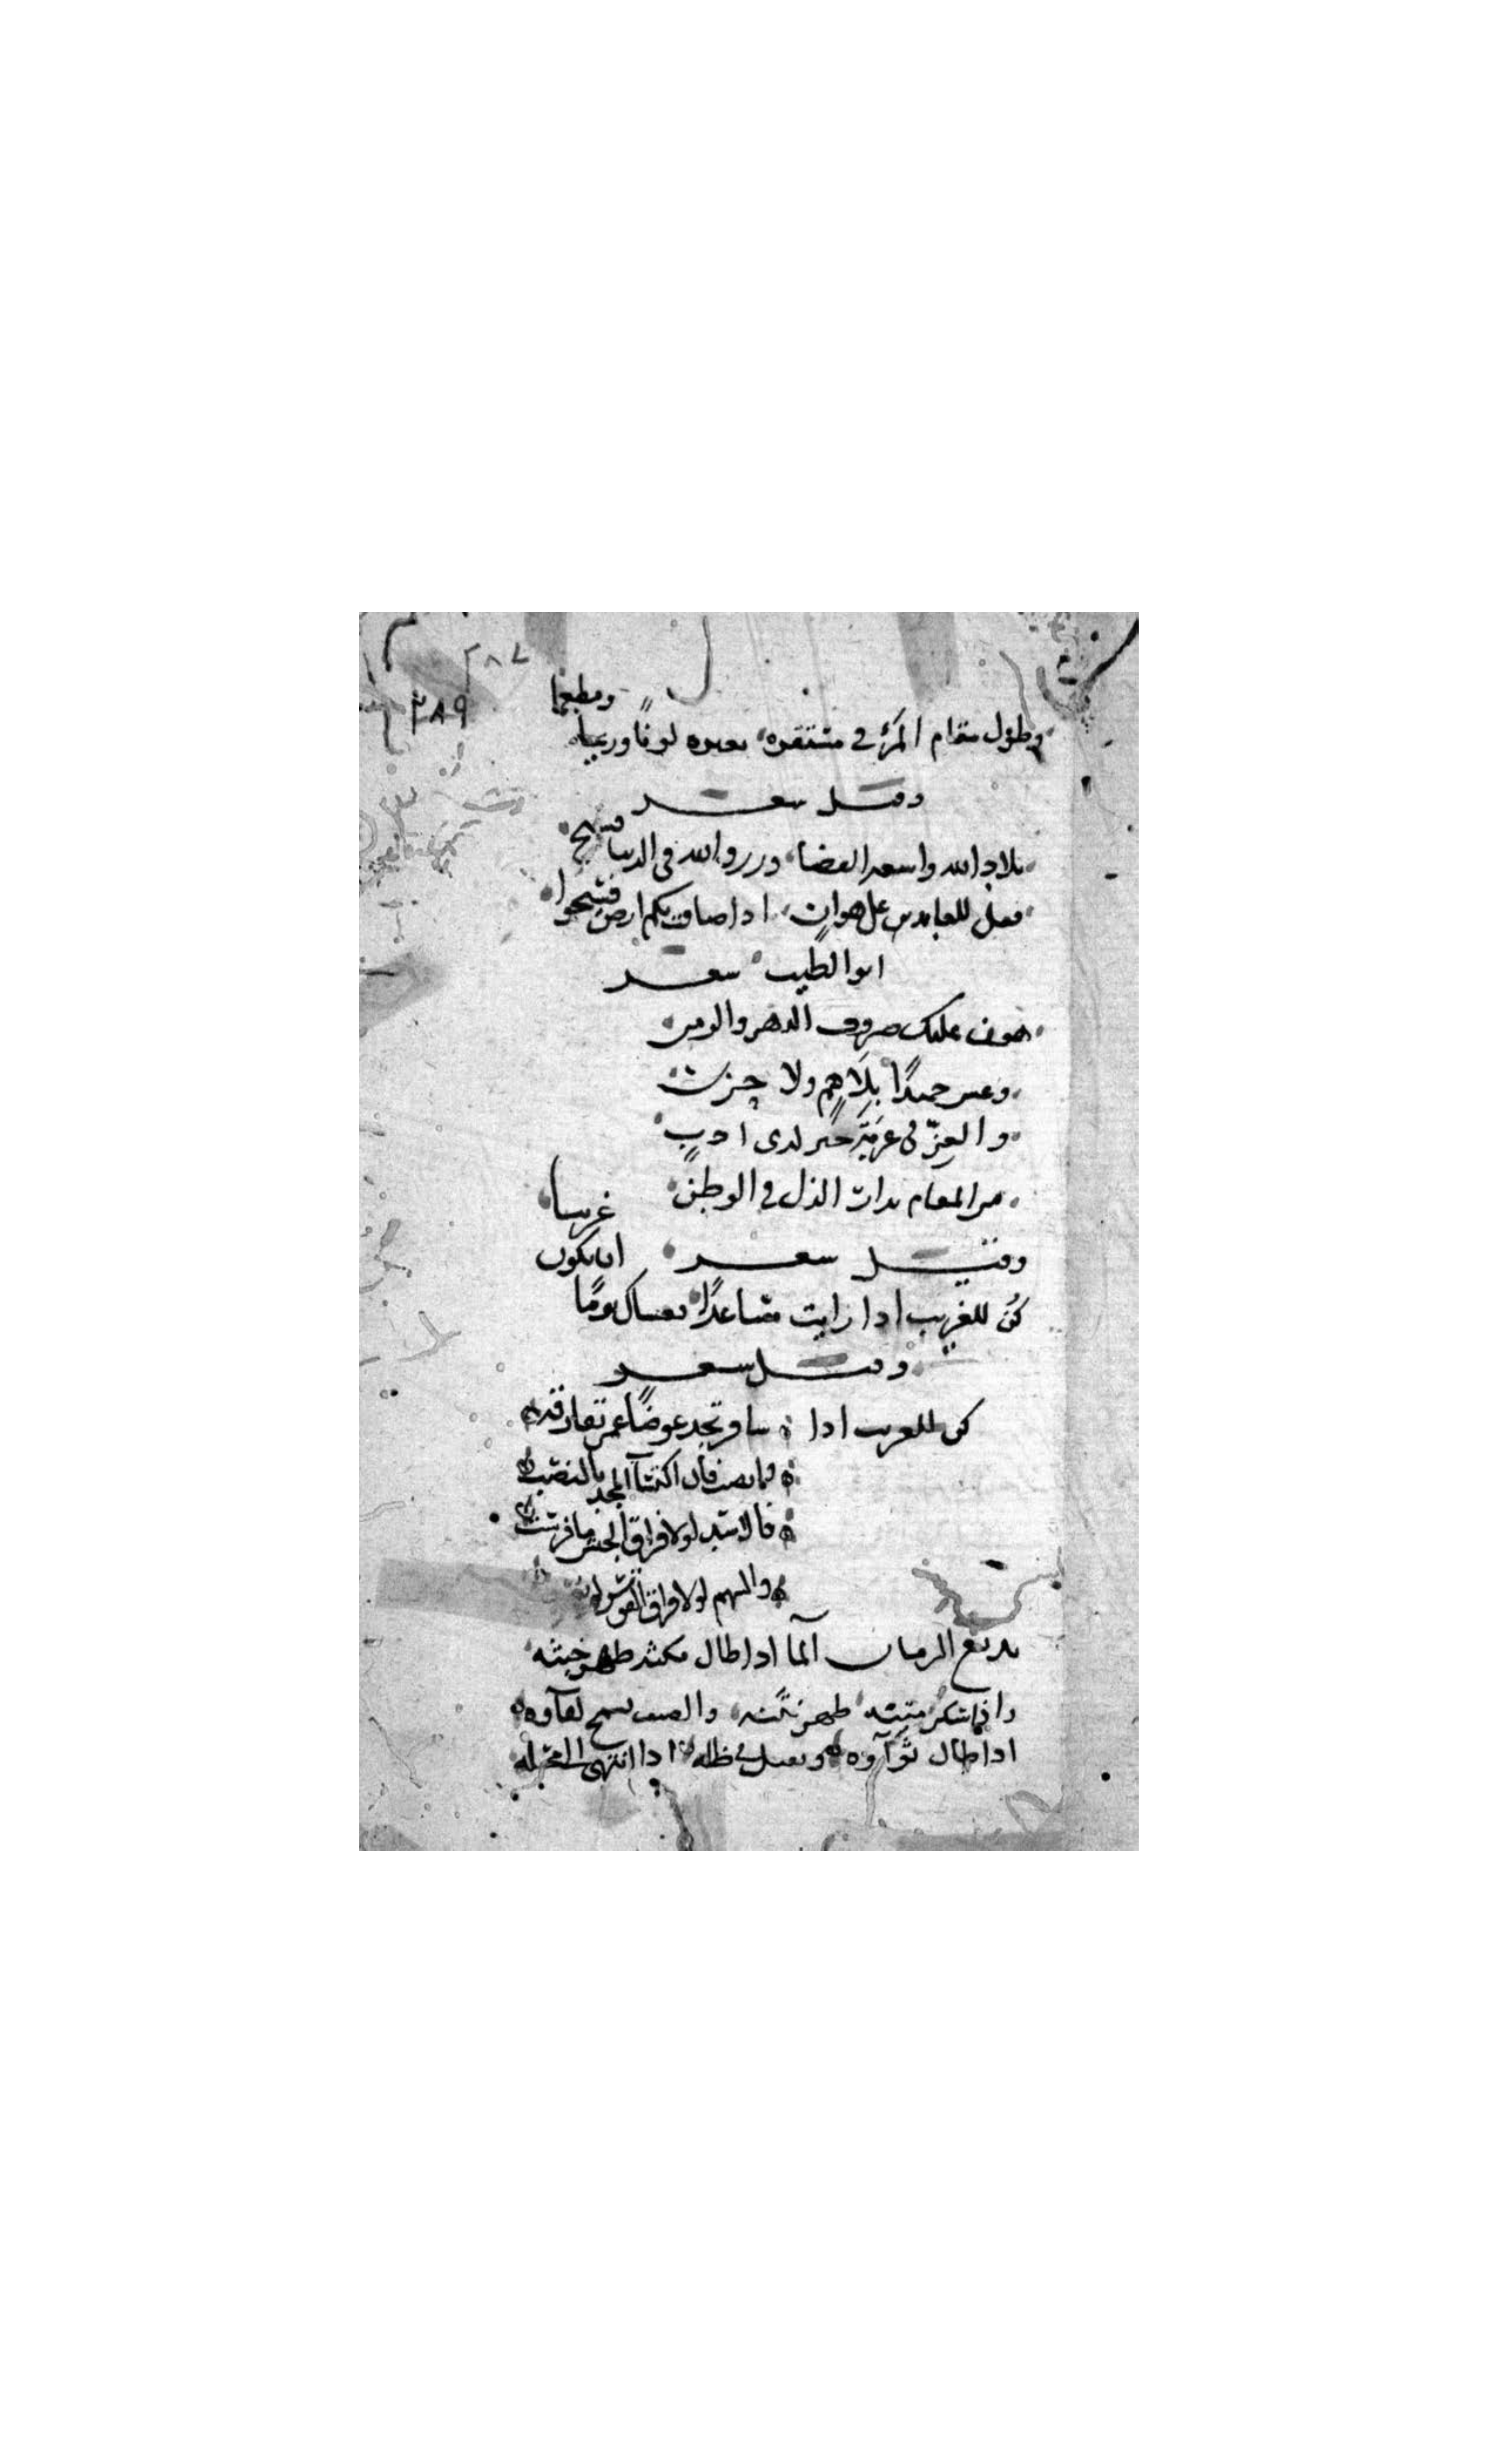 ٢٨٧
٢٨٩
وطول مقام المرء في مستقره يغيره لونا وريحا ومطعما
وقيل شعر
بلاد الله واسعة الفضا ورزق الله في الدنيا فسيح
فقل للقاعدين على هوان اذا ضاقت بكم ارض فسيحوا
ابو الطيب شعر
هون عليك صروف الدهر والزمن
وعش حميدًا بلا هم ولا حزن
والعزّ في غربة خير لدى ادبٍ
من المقام بدار الذل في الوطن
وقيل شعر
كن للغريب اذا رايت مساعدًا فعساك يومًا ان تكون غريبا
وقيل شعر
كن للغريب اذا سافر تجد عوضًا عمن تفارقه
وانصب فان اكتساب المجد بالنصب
فالاسد لولا فراق الخيس ما فرست
والسهم لولا فراق القوس لم
بديع الزمان الما اذا طال مكثه ظهر خبثه
واذا سكن متنه ظهر نتنه والضيف يسمج لقاوه
اذا طال ثواوه ويثقل ظله اذا انتهى محله